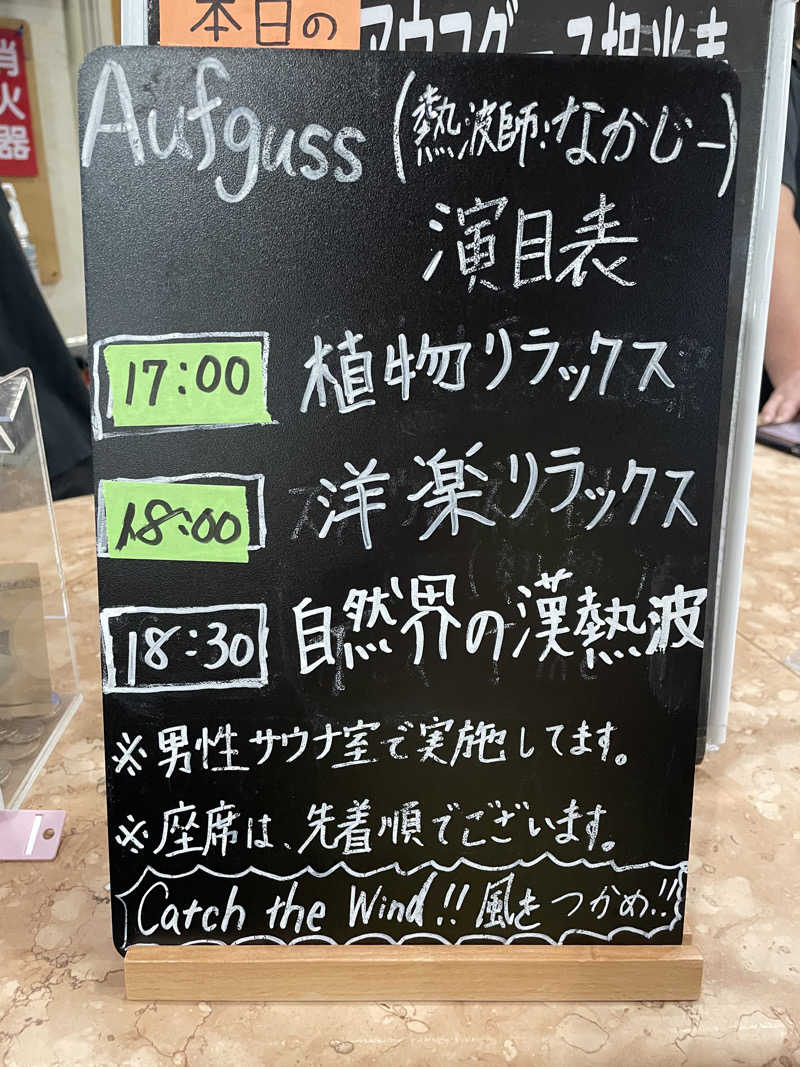 本日の
アウフグース担当表
消火器
Aufguss (熱波師:なかじー)
演目表
17:00 植物リラックス
18:00 洋楽リラックス
18:30 自然界の漢熱波
※男性サウナ室で実施してます。
※座席は、先着順でございます。
Catch the Wind!! 風をつかめ!!